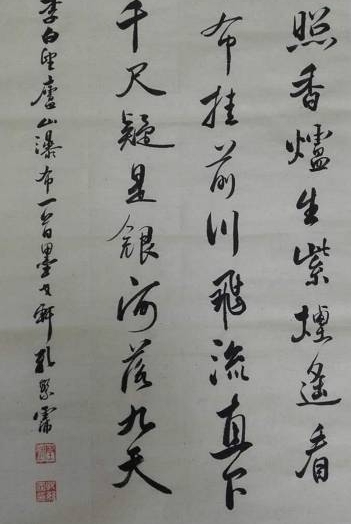 照香爐生紫煙遙看
布挂前川飛流直下
千尺疑是銀河落九天
李白望廬山瀑布一首墨軒孔